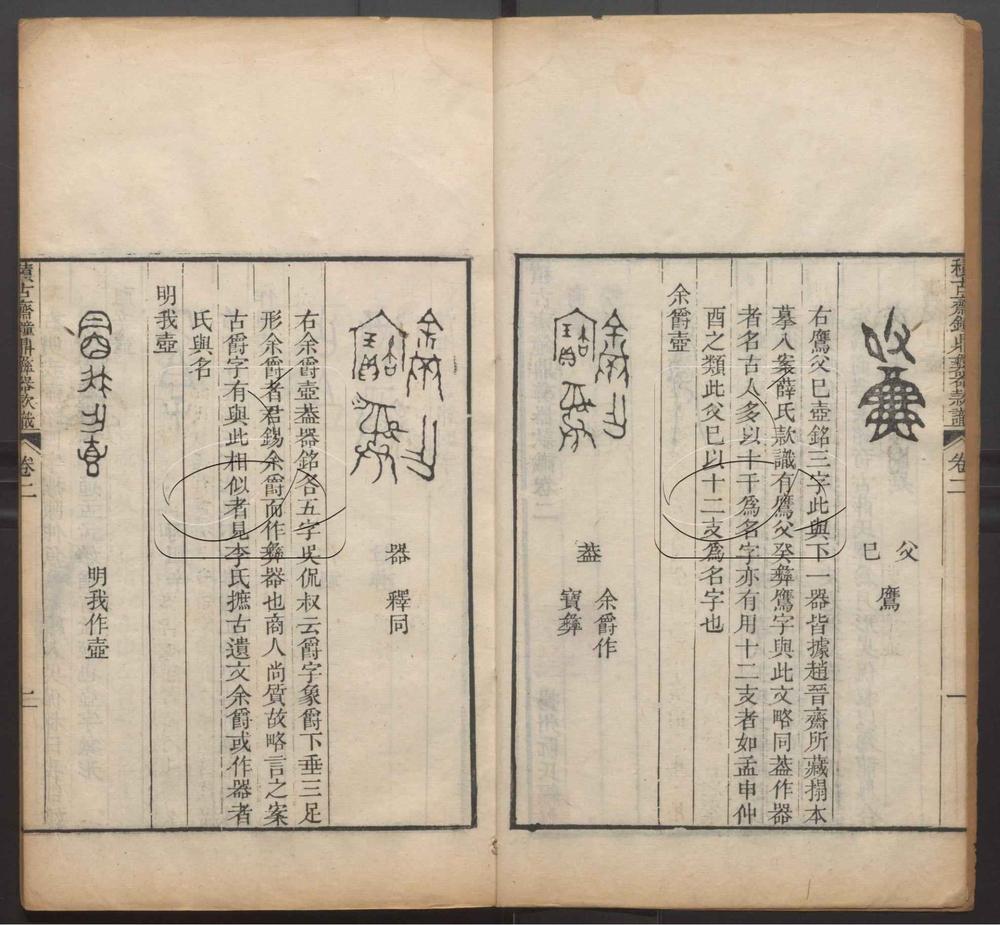 積古齋鐘鼎彝器款識 卷二 一
父
鷹
巳
右鷹父巳壺銘三字此與下一器皆據趙晉齋所藏搨本
摹入案薛氏款識有鷹父癸彝鷹字與此文略同葢作器
者名古人多以十干爲名字亦有用十二支者如孟申仲
酉之類此父巳以十二支爲名字也
余爵壺
余爵作
葢
寶彝
器 釋同
右余爵壺葢器銘各五字吳侃叔云爵字象爵下垂三足
形余爵者君錫余爵而作彝器也商人尚質故略言之案
古爵字有與此相似者見李氏摭古遺文余爵或作器者
氏與名
明我壺
明我作壺
積古齋鐘鼎彝器款識 卷二 二